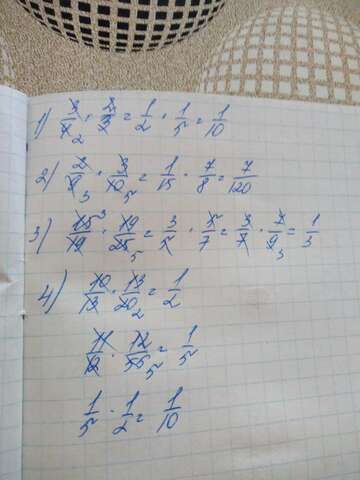 1) 3/4 2 · 2/3 = 1/2 · 1/5 = 1/10
2) 2/9 3 · 3/10 5 = 1/15 · 7/8 = 7/120
3) 15 3/19 · 19/25 5 = 3/5 · 5/7 = 3/7 · 7/9 3 = 1/3
4) 10/13 · 13/20 2 = 1/2
11/12 · 12/55 5 = 1/5
1/5 · 1/2 = 1/10